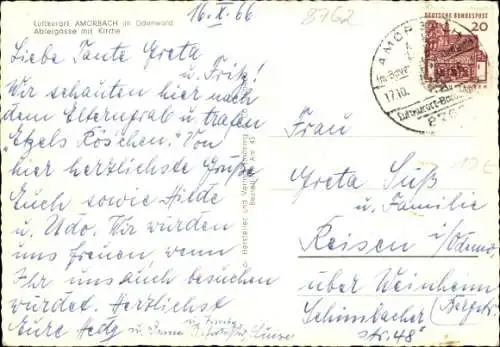 Luftkurort AMORBACH im Odenwald
Abteigasse mit Kirche
16.X.66
8762
Liebe Tante Greta
u. Fritz!
Wir schauten hier nach
dem Elterngrab u. trafen
"Etzels Röschen." Von
hier herzlichste Grüße
Euch sowie Hilde
u. Udo. Wir würden
uns freuen, wenn
Ihr uns auch besuchen
würdet. Herzlichst
Eure Hedy u.
Hersteller und
DEUTSCHE BUNDESPOST
20
AMORBACH
17.10.
Luftkurort
Frau
Greta Süß
u. Familie
Reisen i/Odenw.
über Weinheim
(Bergstr.
Schimbacher
str. 48"